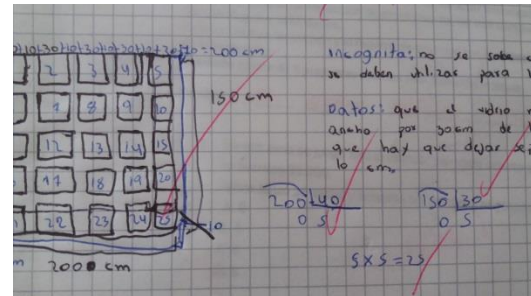 10+30+10+30+10+30+10+30+10=200 cm
2 3 4 5
150 cm
7 8 9 10
12 13 14 15
17 18 19 20
22 23 24 25
10
2000 cm
Incognita: no se sabe
se deben utilizar para
Datos: que el vidrio
ancho por 30cm de
que hay que dejar
10 cm.
200 40
0 5
150 30
0 5
5 x 5 = 25